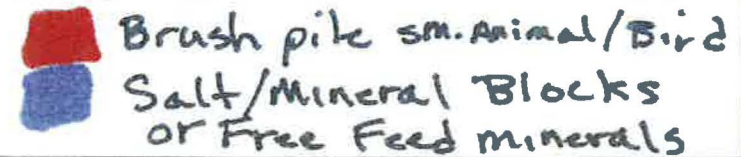 Brush pile sm. Animal/Bird
Salt/Mineral Blocks
or Free Feed minerals